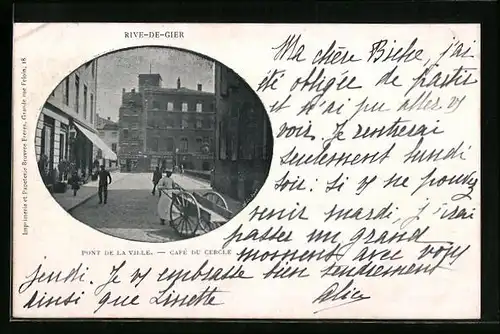 RIVE-DE-GIER
Imprimerie et Papeterie
Grande rue Féloin, 18
PONT DE LA VILLE. — CAFÉ DU CERCLE
Ma chère Biche, j'ai
été obligée de partir
et n'ai pu aller vs
voir. Je rentrerai
seulement lundi
soir: si vs ne pouvez
venir mardi, j'irai
passer un grand
moment avec vous
jeudi. Je vs embrasse bien tendrement
ainsi que Linette
Alice